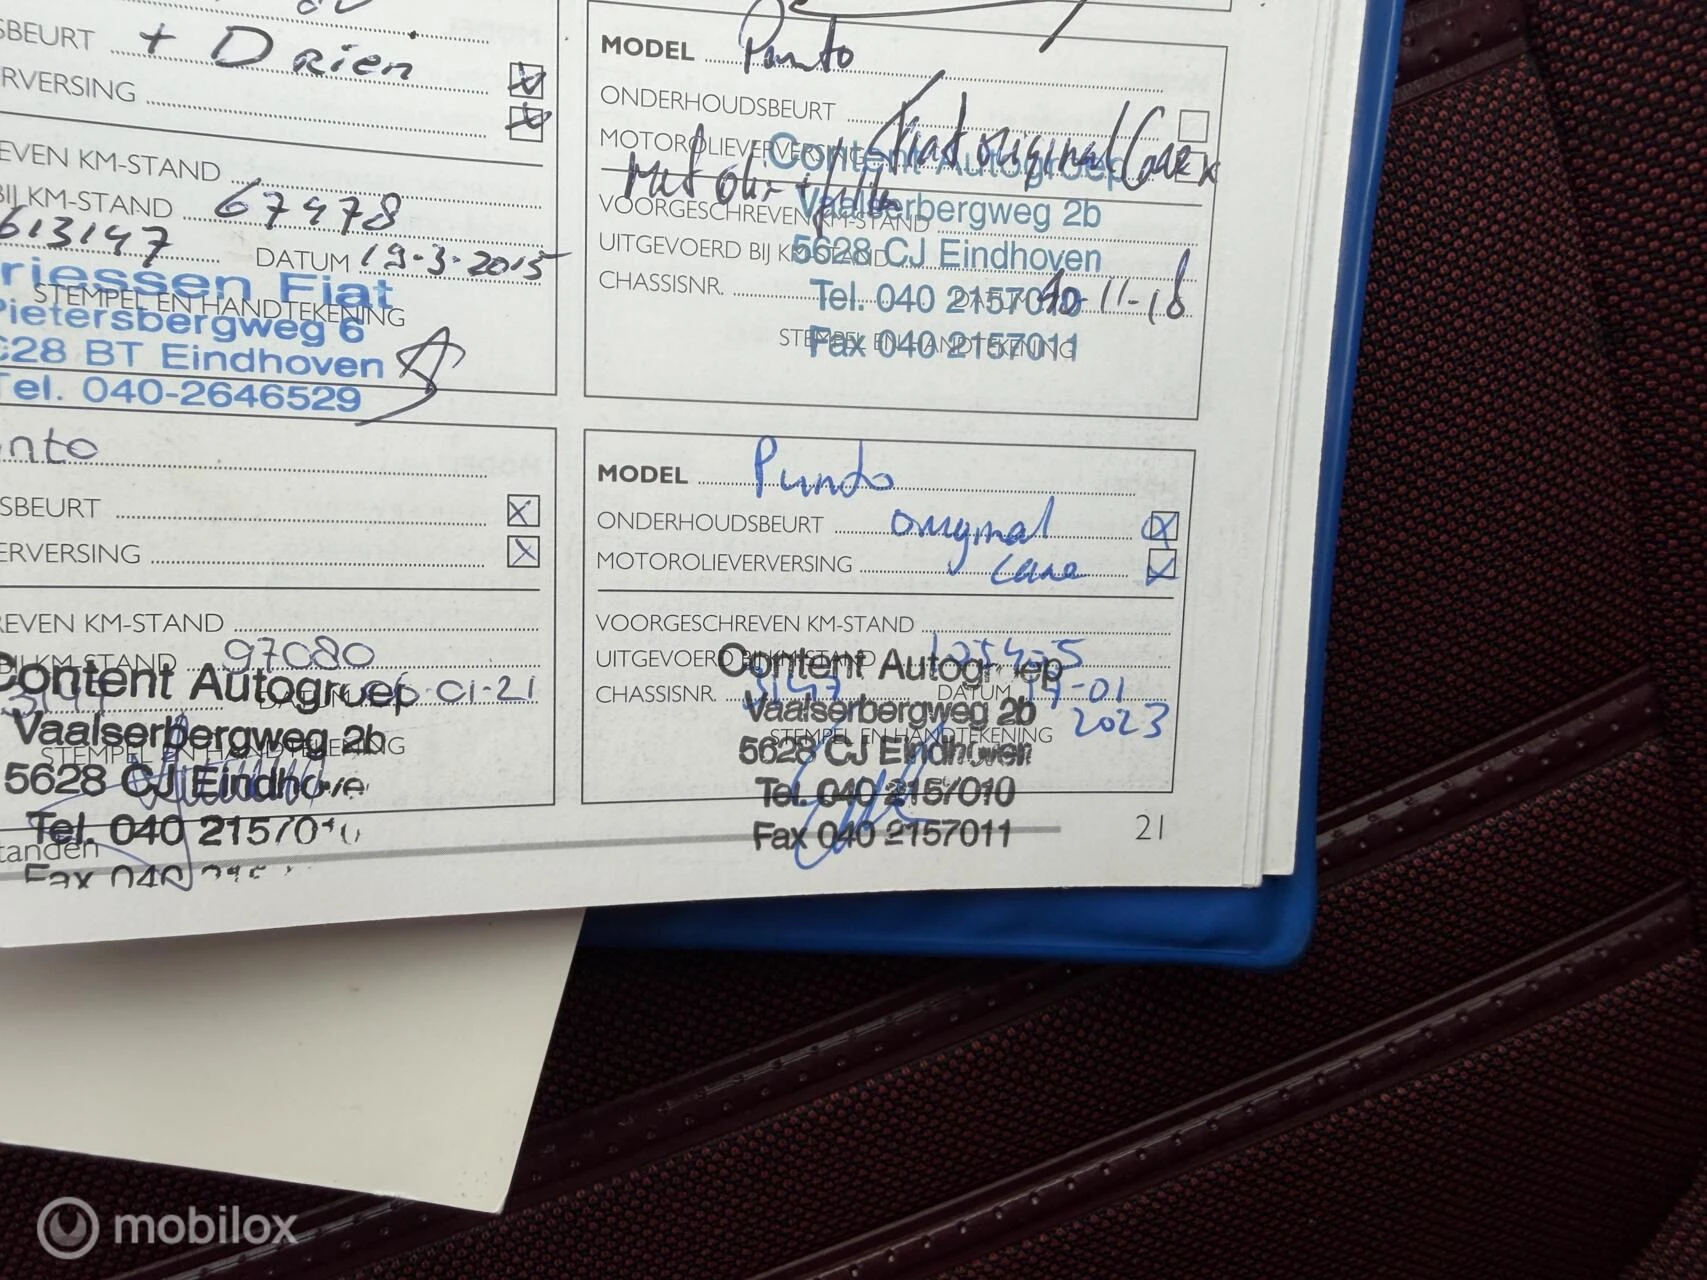 SBEURT + Drien
RVERSING
EVEN KM-STAND
BIJ KM-STAND 67478
613147 DATUM 19-3-2015
riessen Fiat
STEMPEL EN HANDTEKENING
Pietersbergweg 6
628 BT Eindhoven
Tel. 040-2646529
MODEL Punto
ONDERHOUDSBEURT
MOTOROLIEVERVERSING Fiat original Care x
Content Autogroep
met olie + filter
VOORGESCHREVEN KM-STAND
Vaalserbergweg 2b
UITGEVOERD BIJ KM-STAND
5628 CJ Eindhoven
CHASSISNR. DATUM
-11-18
Tel. 040 2157010
STEMPEL EN HANDTEKENING
Fax 040 2157011
nto
SBEURT X
ERVERSING X
REVEN KM-STAND
BIJ KM-STAND 97080
Content Autogroep
3147 DATUM 06-01-21
Vaalserbergweg 2b
STEMPEL EN HANDTEKENING
5628 CJ Eindhove
Tel. 040 21570
tanden
Fax 040
MODEL Punto
ONDERHOUDSBEURT original X
MOTOROLIEVERVERSING care X
VOORGESCHREVEN KM-STAND
UITGEVOERD BIJ KM-STAND
Content Autogroep
CHASSISNR. 3147 DATUM 17-01
2023
Vaalserbergweg 2b
STEMPEL EN HANDTEKENING
5628 CJ Eindhoven
Tel. 040 2157010
Fax 040 2157011
21
mobilox